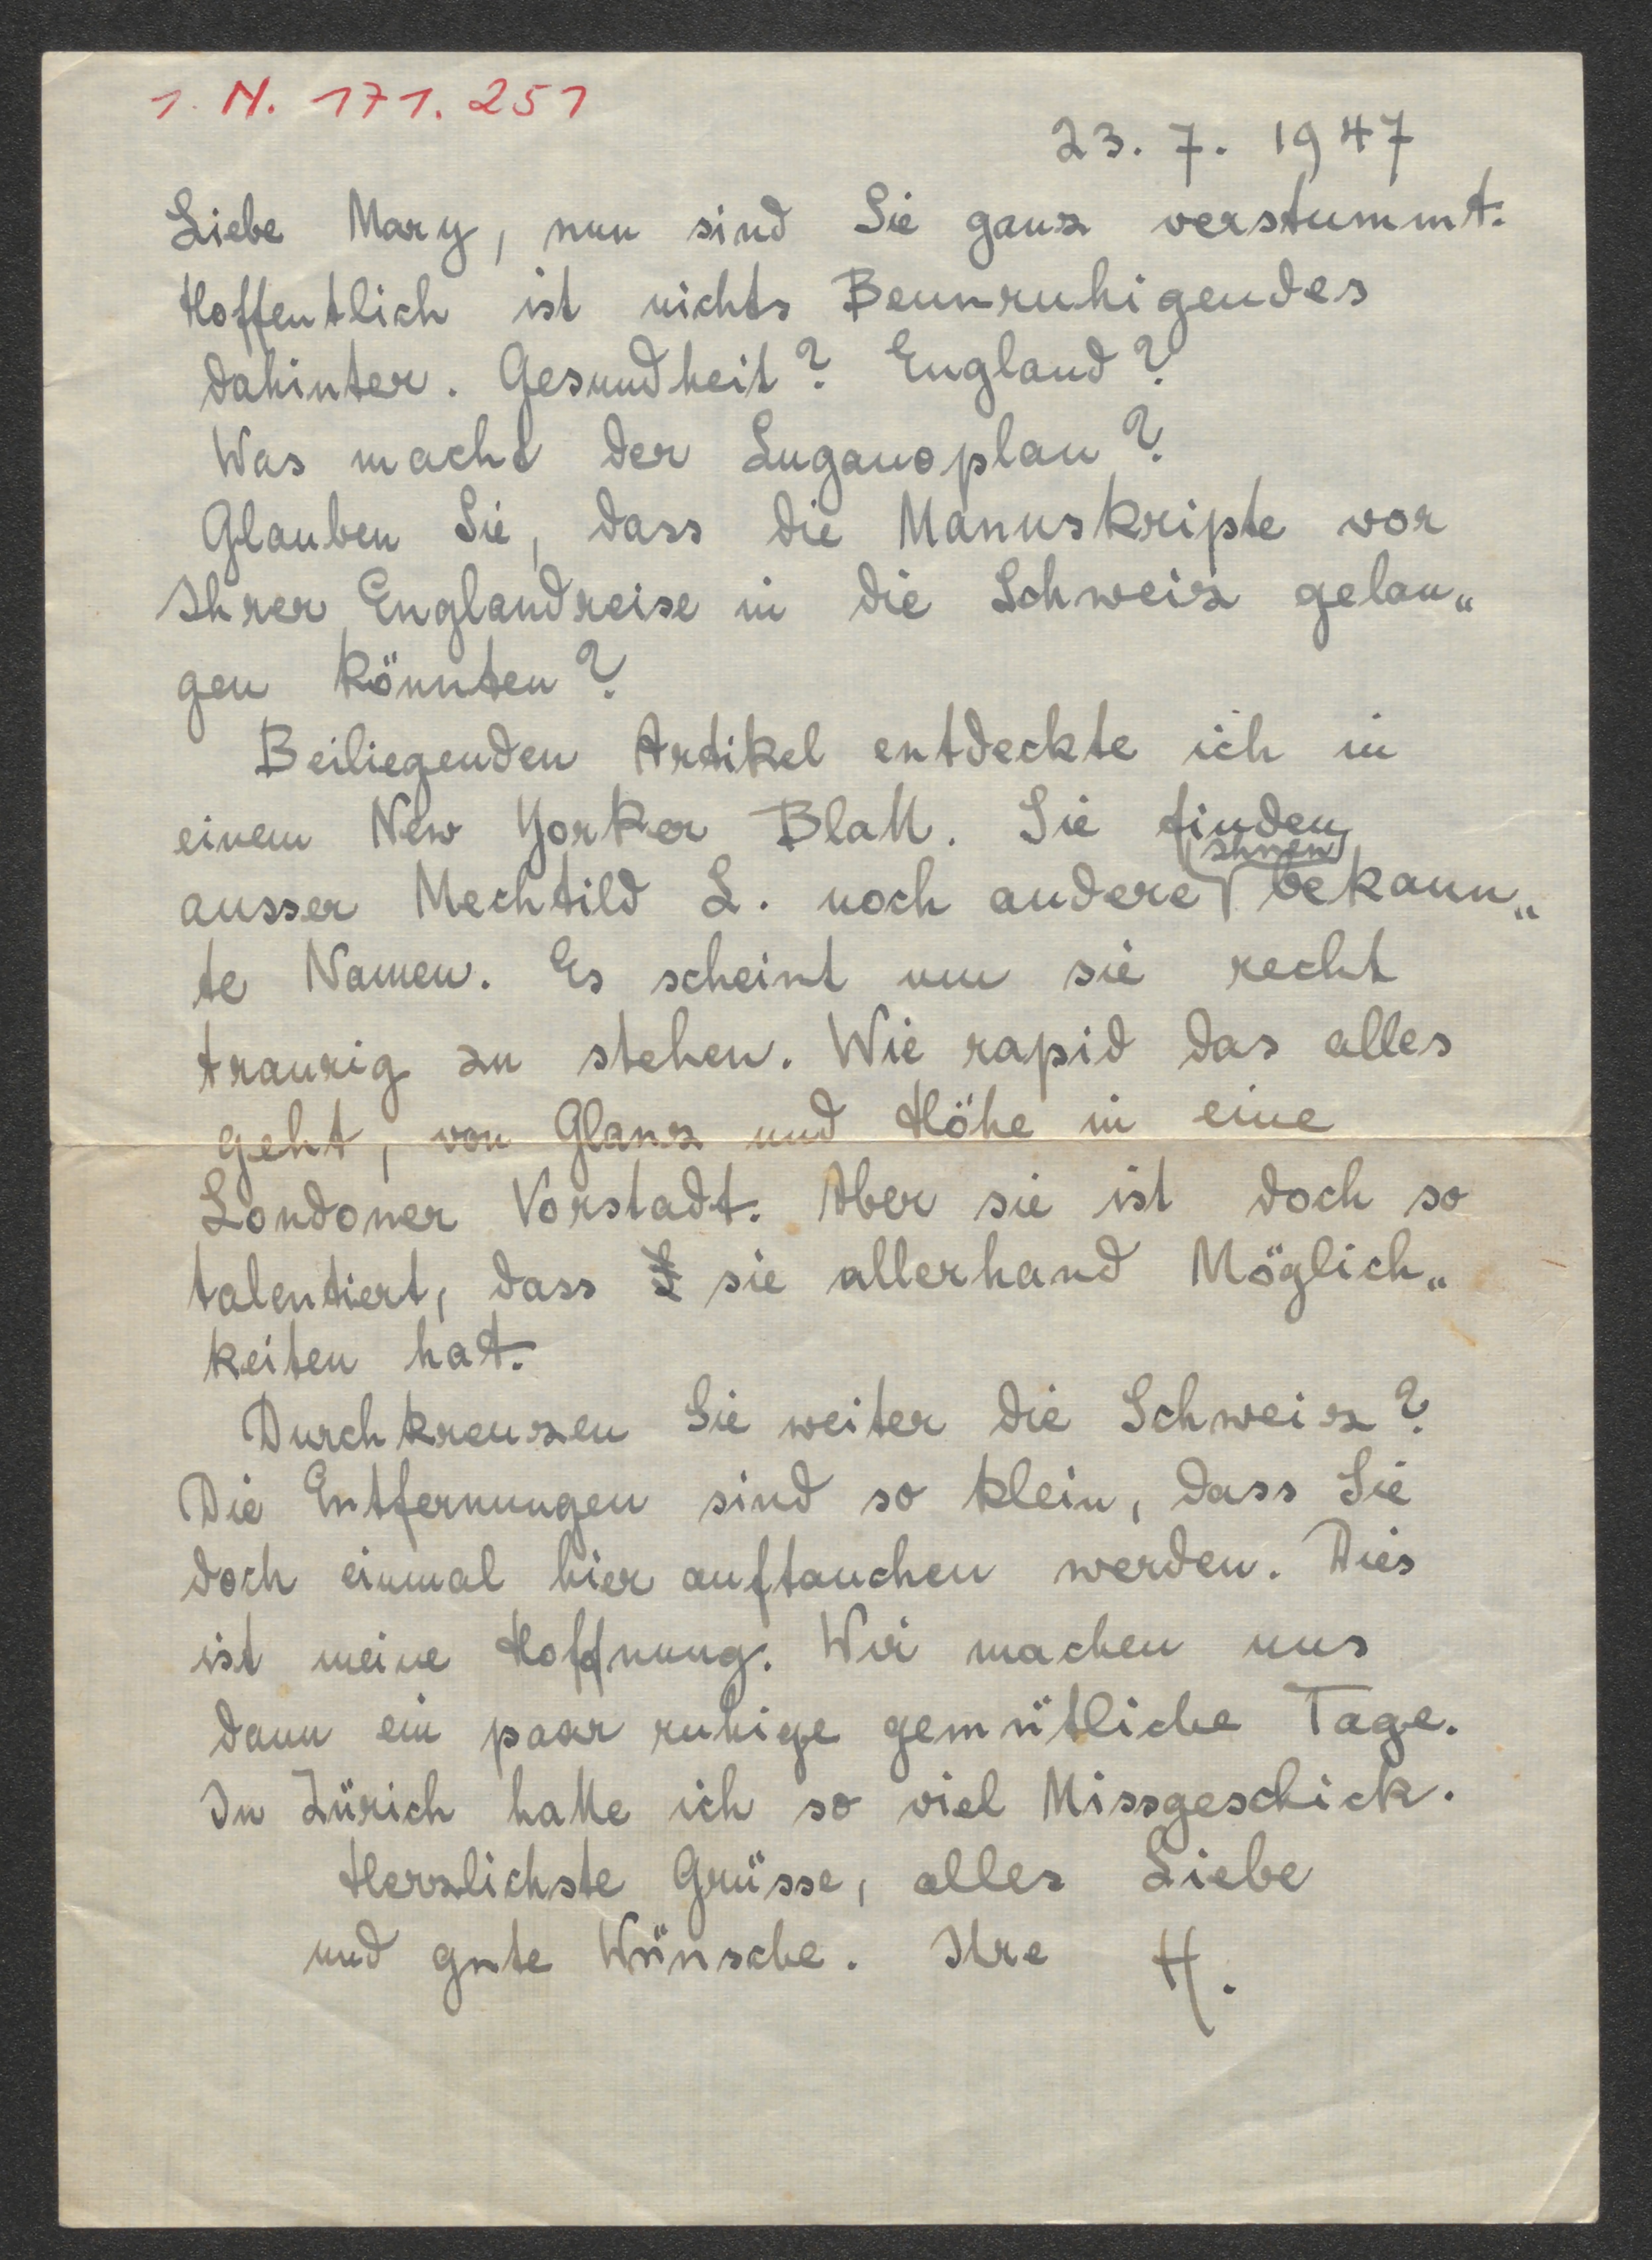 1. N. 171.251
23. 7. 1947
Liebe Mary, nun sind Sie ganz verstummt.
Hoffentlich ist nichts Beunruhigendes
dahinter. Gesundheit? England?
Was macht der Luganoplan?
Glauben Sie, dass die Manuskripte vor
Ihrer Englandreise in die Schweiz gelan„
gen könnten?
Beiliegenden Artikel entdeckte ich in
einem New Yorker Blatt. Sie finden
ausser Mechtild L. noch andere Ihnen bekann„
te Namen. Es scheint um sie recht
traurig zu stehen. Wie rapid das alles
geht, von Glanz und Höhe in eine
Londoner Vorstadt. Aber sie ist doch so
talentiert, dass sie allerhand Möglich„
keiten hat.
Durchkreuzen Sie weiter die Schweiz?
Die Entfernungen sind so klein, dass Sie
doch einmal hier auftauchen werden. Dies
ist meine Hoffnung. Wir machen uns
dann ein paar ruhige gemütliche Tage.
In Zürich hatte ich so viel Missgeschick.
Herzlichste Grüsse, alles Liebe
und gute Wünsche. Ihre H.